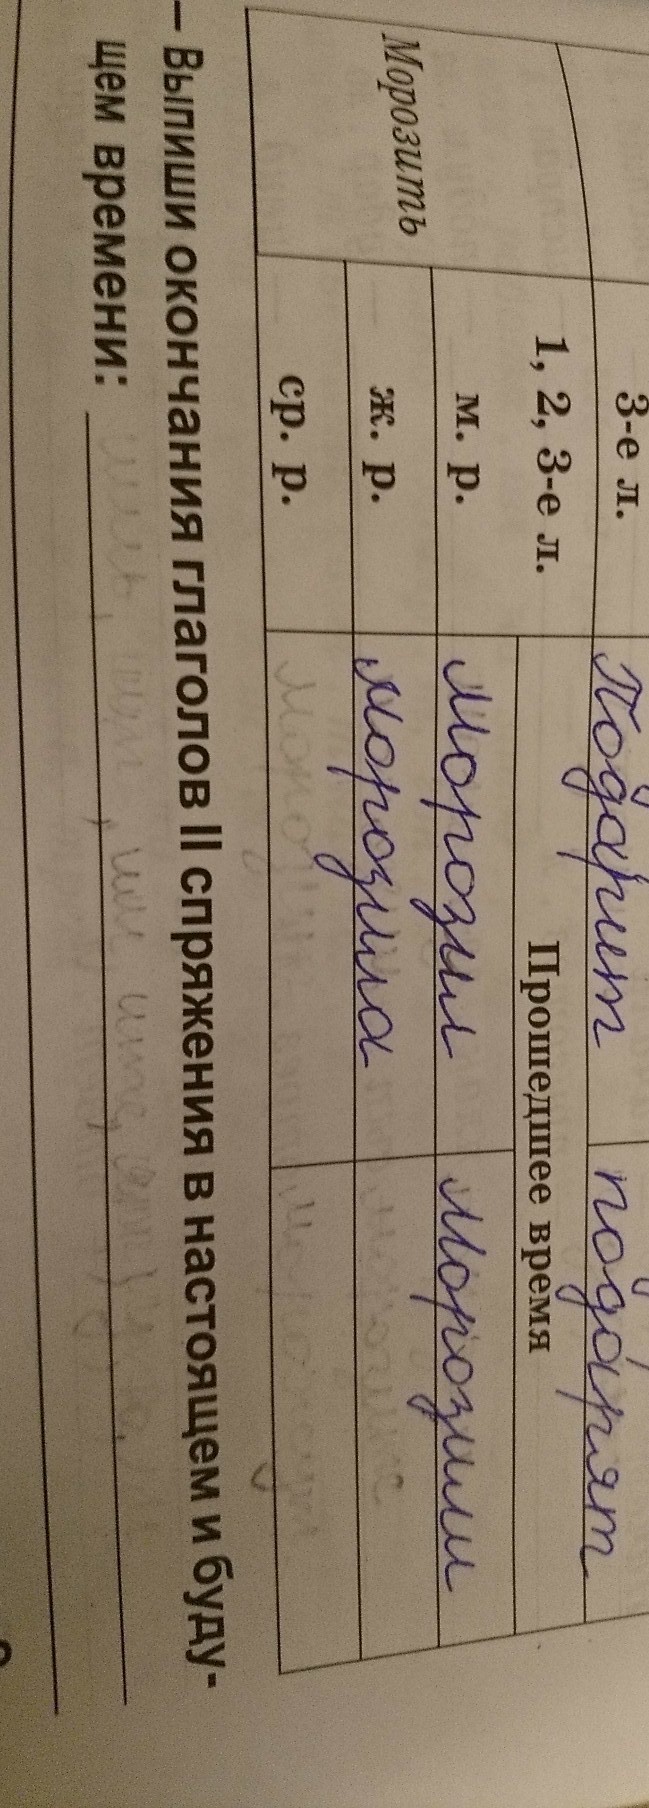 3-е л. Подарит подарят
1, 2, 3-е л. Прошедшее время
Морозить
м. р. Морозил Морозили
ж. р. Морозила
ср. р.
— Выпиши окончания глаголов II спряжения в настоящем и буду-
щем времени: